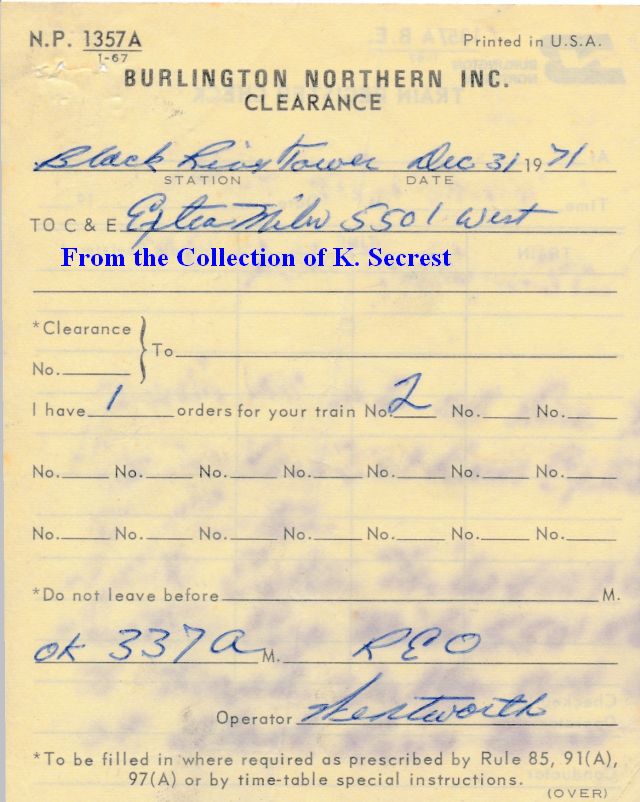 N.P. 1357A Printed in U.S.A.
1-67
BURLINGTON NORTHERN INC.
CLEARANCE
Black River Tower Dec 31 1971
STATION DATE
TO C & E Extra Milw 5501 West
From the Collection of K. Secrest
*Clearance
No. To
I have 1 orders for your train No. 2 No. No.
No. No. No. No. No. No. No.
No. No. No. No. No. No. No.
*Do not leave before M.
OK 337A M. REO
Operator Wentworth
*To be filled in where required as prescribed by Rule 85, 91(A),
97(A) or by time-table special instructions.
(OVER)